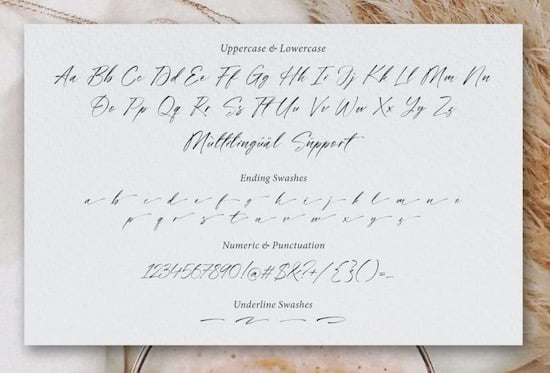 Uppercase & Lowercase
Aa Bb Cc Dd Ee Ff Gg Hh Ii Jj Kk Ll Mm Nn
Oo Pp Qq Rr Ss Tt Uu Vv Ww Xx Yy Zz
Mùltîlingüäl Súpport
Ending Swashes
a b c d e f g h i j k l m n o
p q r s t u v w x y z
Numeric & Punctuation
1234567890!@#$&?+/{}()=-
Underline Swashes